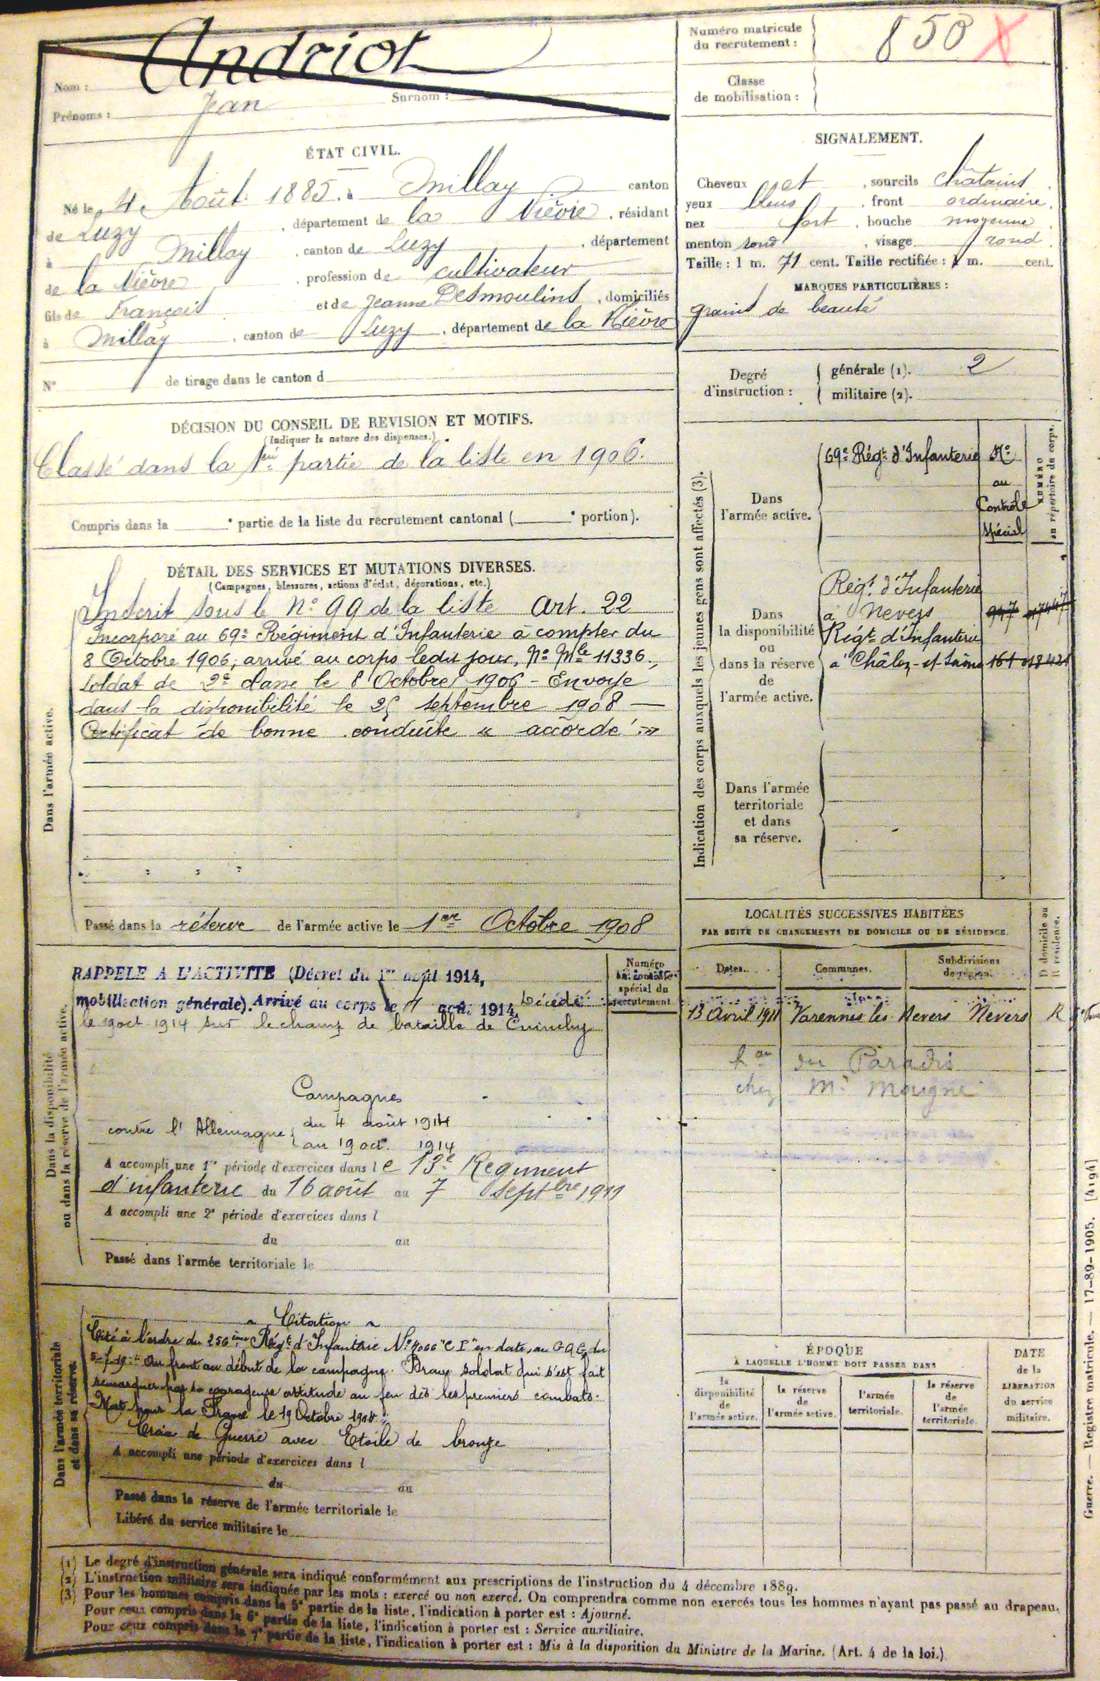 Andriot
Nom :
Prénoms : Jean Surnom :
Numéro matricule
du recrutement : 850 X
Classe
de mobilisation :
ÉTAT CIVIL.
Né le 4 Août 1885, à Millay canton
de Luzy, département de la Nièvre, résidant
à Millay, canton de Luzy, département
de la Nièvre, profession de cultivateur
fils de François et de Jeanne Desmoulins, domiciliés
à Millay, canton de Luzy, département de la Nièvre
N° de tirage dans le canton d
SIGNALEMENT.
Cheveux et, sourcils châtains,
yeux bleus, front ordinaire,
nez fort, bouche moyenne
menton rond, visage rond
Taille : 1 m. 71 cent. Taille rectifiée : 1 m. cent.
MARQUES PARTICULIÈRES :
grains de beauté
Degré
d'instruction :
générale (1). 2
militaire (2).
DÉCISION DU CONSEIL DE REVISION ET MOTIFS.
(Indiquer la nature des dispenses.)
Classé dans la 1ère partie de la liste en 1906.
Compris dans la e partie de la liste du recrutement cantonal ( e portion).
DÉTAIL DES SERVICES ET MUTATIONS DIVERSES.
(Campagnes, blessures, actions d'éclat, décorations, etc.)
Dans l'armée active.
Inscrit sous le N° 99 de la liste Art. 22
Incorporé au 69e Régiment d'Infanterie à compter du
8 Octobre 1906, arrivé au corps ledit jour, N° Mle 11336,
soldat de 2e classe le 8 Octobre 1906 - Envoyé
dans la disponibilité le 25 septembre 1908 —
Certificat de bonne conduite " accordé "
Passé dans la réserve de l'armée active le 1er Octobre 1908
Indication des corps auxquels les jeunes gens sont affectés (3).
Dans
l'armée active.
69e Régt d'Infanterie
N°
au
Contrôle
spécial
NUMÉRO
au répertoire du corps.
Dans
la disponibilité
ou
dans la réserve
de
l'armée active.
Régt d'Infanterie
à Nevers 947
Régt d'Infanterie
à Châlon-s/-Saône 161
Dans l'armée
territoriale
et dans
sa réserve.
LOCALITÉS SUCCESSIVES HABITÉES
PAR SUITE DE CHANGEMENTS DE DOMICILE OU DE RÉSIDENCE.
Dates. Communes. Subdivisions
de région.
D domicile ou
R résidence.
13 Avril 1911 Varennes les Nevers Nevers R
hau du Paradis
chez Mr Mougne
Dans la disponibilité
ou dans la réserve de l'armée active.
Numéro
au contrôle
spécial du
recrutement
RAPPELE A L'ACTIVITE (Décret du 1er août 1914,
mobilisation générale). Arrivé au corps le 4 août 1914, Décédé
le 19 oct 1914 sur le champ de bataille de Cuinchy
Campagnes
contre l'Allemagne { du 4 août 1914
au 19 oct. 1914
A accompli une 1re période d'exercices dans le 13e Régiment
d'infanterie du 16 août au 7 septbre 1911
A accompli une 2e période d'exercices dans l
du au
Passé dans l'armée territoriale le
Dans l'armée territoriale
et dans sa réserve.
Citation
Cité à l'ordre du 256ème Régt d'Infanterie N° "C I" en date, au du
Au front au début de la campagne. Brave soldat qui s'est fait
remarquer par sa courageuse attitude au feu dès les premiers combats.
Mort pour la France le 19 Octobre
Croix de Guerre avec Etoile de bronze
A accompli une période d'exercices dans l
du au
Passé dans la réserve de l'armée territoriale le
Libéré du service militaire le
ÉPOQUE
À LAQUELLE L'HOMME DOIT PASSER DANS
la
disponibilité
de
l'armée active.
la réserve
de
l'armée active.
l'armée
territoriale.
la réserve
de
l'armée
territoriale.
DATE
de la
LIBÉRATION
du service
militaire.
(1) Le degré d'instruction générale sera indiqué conformément aux prescriptions de l'instruction du 4 décembre 1889.
(2) L'instruction militaire sera indiquée par les mots : exercé ou non exercé. On comprendra comme non exercés tous les hommes n'ayant pas passé au drapeau.
(3) Pour les hommes compris dans la 5e partie de la liste, l'indication à porter est : Ajourné.
Pour ceux compris dans la 6e partie de la liste, l'indication à porter est : Service auxiliaire.
Pour ceux compris dans la 7e partie de la liste, l'indication à porter est : Mis à la disposition du Ministre de la Marine. (Art. 4 de la loi.)
Guerre. — Registre matricule. — 17-89-1905. [4194]